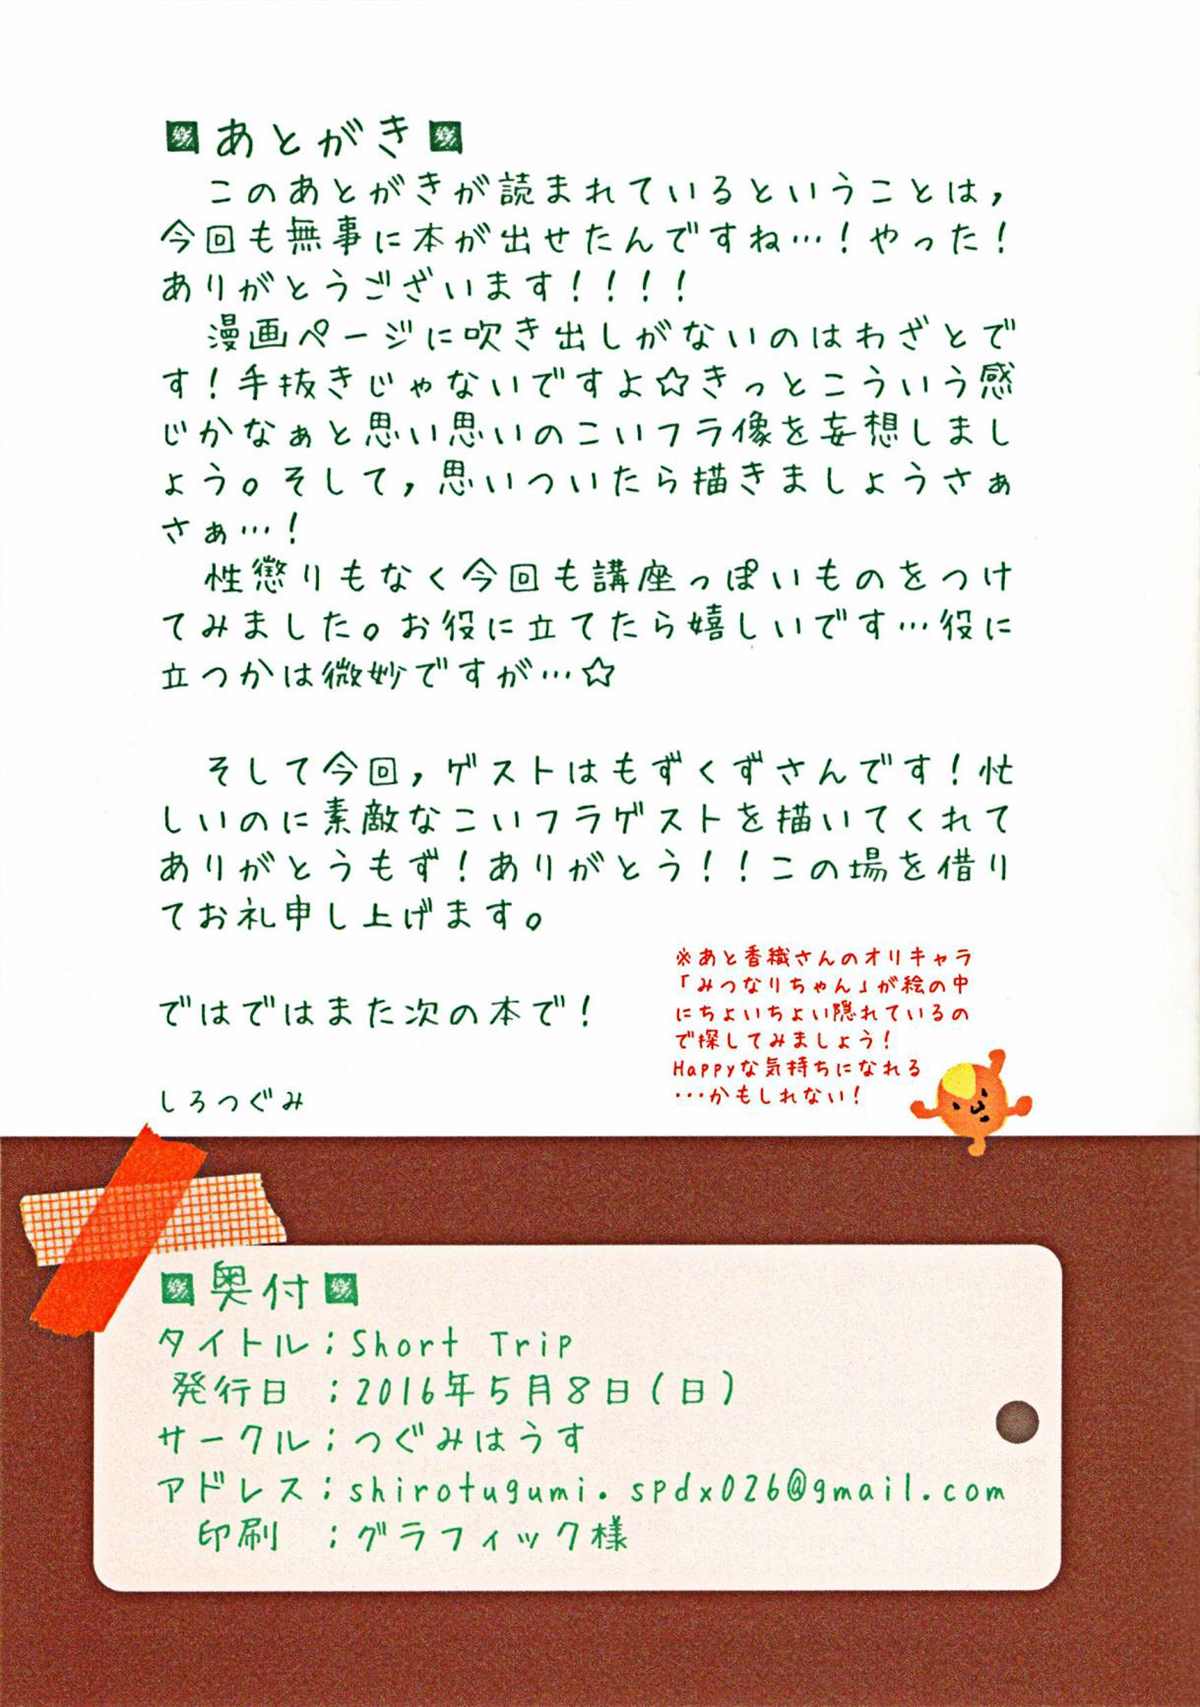 あとがき
　このあとがきが読まれているということは,
今回も無事に本が出せたんですね…！やった！
ありがとうございます！！！！
　漫画ページに吹き出しがないのはわざとで
す！手抜きじゃないですよ☆きっとこういう感
じかなぁと思い思いのこいフラ像を妄想しまし
ょう。そして,思いついたら描きましょうさぁ
さぁ…！
　性懲りもなく今回も講座っぽいものをつけ
てみました。お役に立てたら嬉しいです…役に
立つかは微妙ですが…☆
　そして今回,ゲストはもずくずさんです！忙
しいのに素敵なこいフラゲストを描いてくれて
ありがとうもず！ありがとう！！この場を借り
てお礼申し上げます。
ではではまた次の本で！
しろつぐみ
※あと香織さんのオリキャラ
「みつなりちゃん」が絵の中
にちょいちょい隠れているの
で探してみましょう！
Happyな気持ちになれる
…かもしれない！
奥付
タイトル：Short Trip
発行日　：2016年5月8日(日)
サークル：つぐみはうす
アドレス：shirotugumi.spdx026@gmail.com
印刷　：グラフィック様